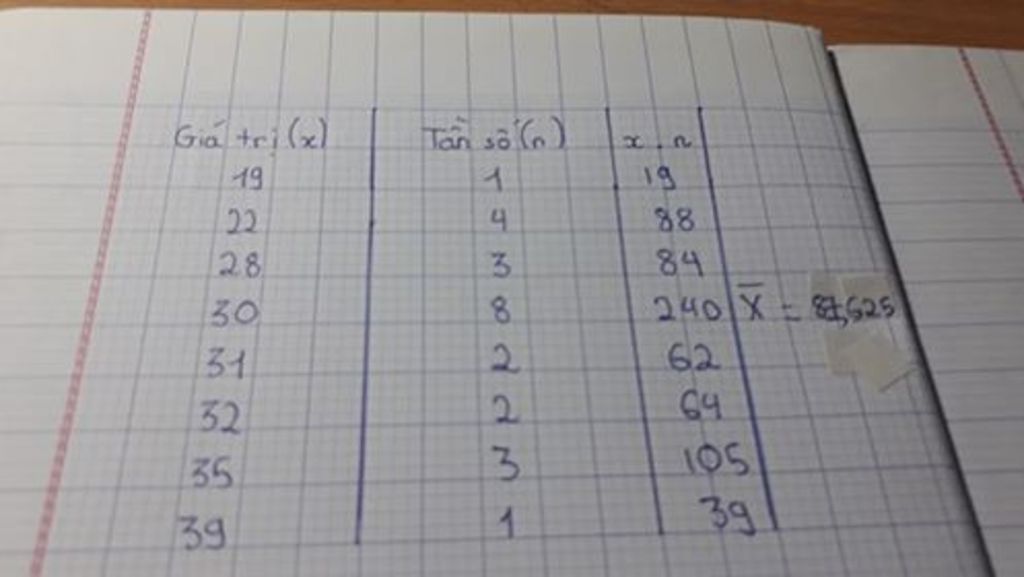 Giá trị (x) Tần số (n) x . n
19 1 19
22 4 88
28 3 84
30 8 240 X̅ = 87,625
31 2 62
32 2 64
35 3 105
39 1 39